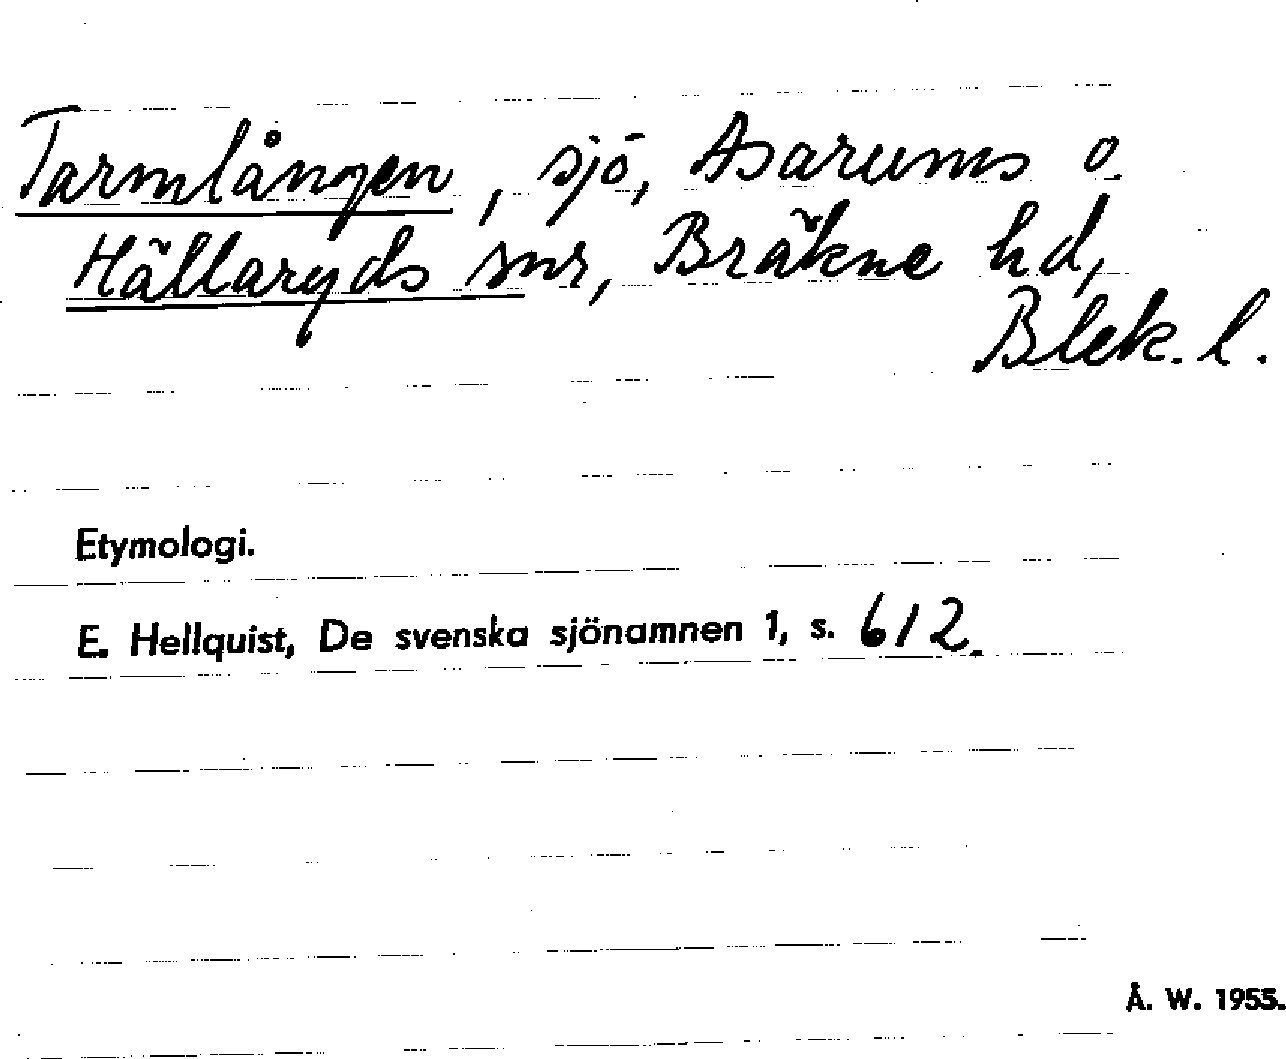 Tarmlången, sjö, Asarums o.
Hällaryds snr, Bräkne hd,
Blek. l.
Etymologi.
E. Hellquist, De svenska sjönamnen 1, s. 612.
Å. W. 1955.